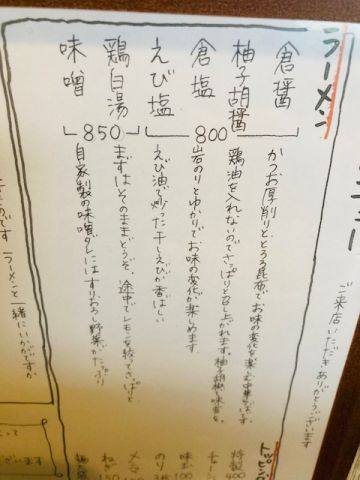 ご来店いただきありがとうございます
ラーメン
倉醤
柚子胡醤
倉塩
えび塩
800
鶏白湯
味噌
850
かつお厚削りと、とろろ昆布でお味の変化を楽しむ
鶏油を入れないのでさっぱりと召し上がれます。柚子胡椒
岩のりとゆかりでお味の変化が楽しめます。
えび油で炒った干しえびが香ばしい
まずはそのままどうぞ。途中でレモンを絞ってさっぱりと
自家製の味噌ダレにはすりおろし野菜がたっぷり
トッピング
特製 400
味玉 100
のり
メンマ
ねぎ 150
ラーメンと一緒にいかがですか
ございます